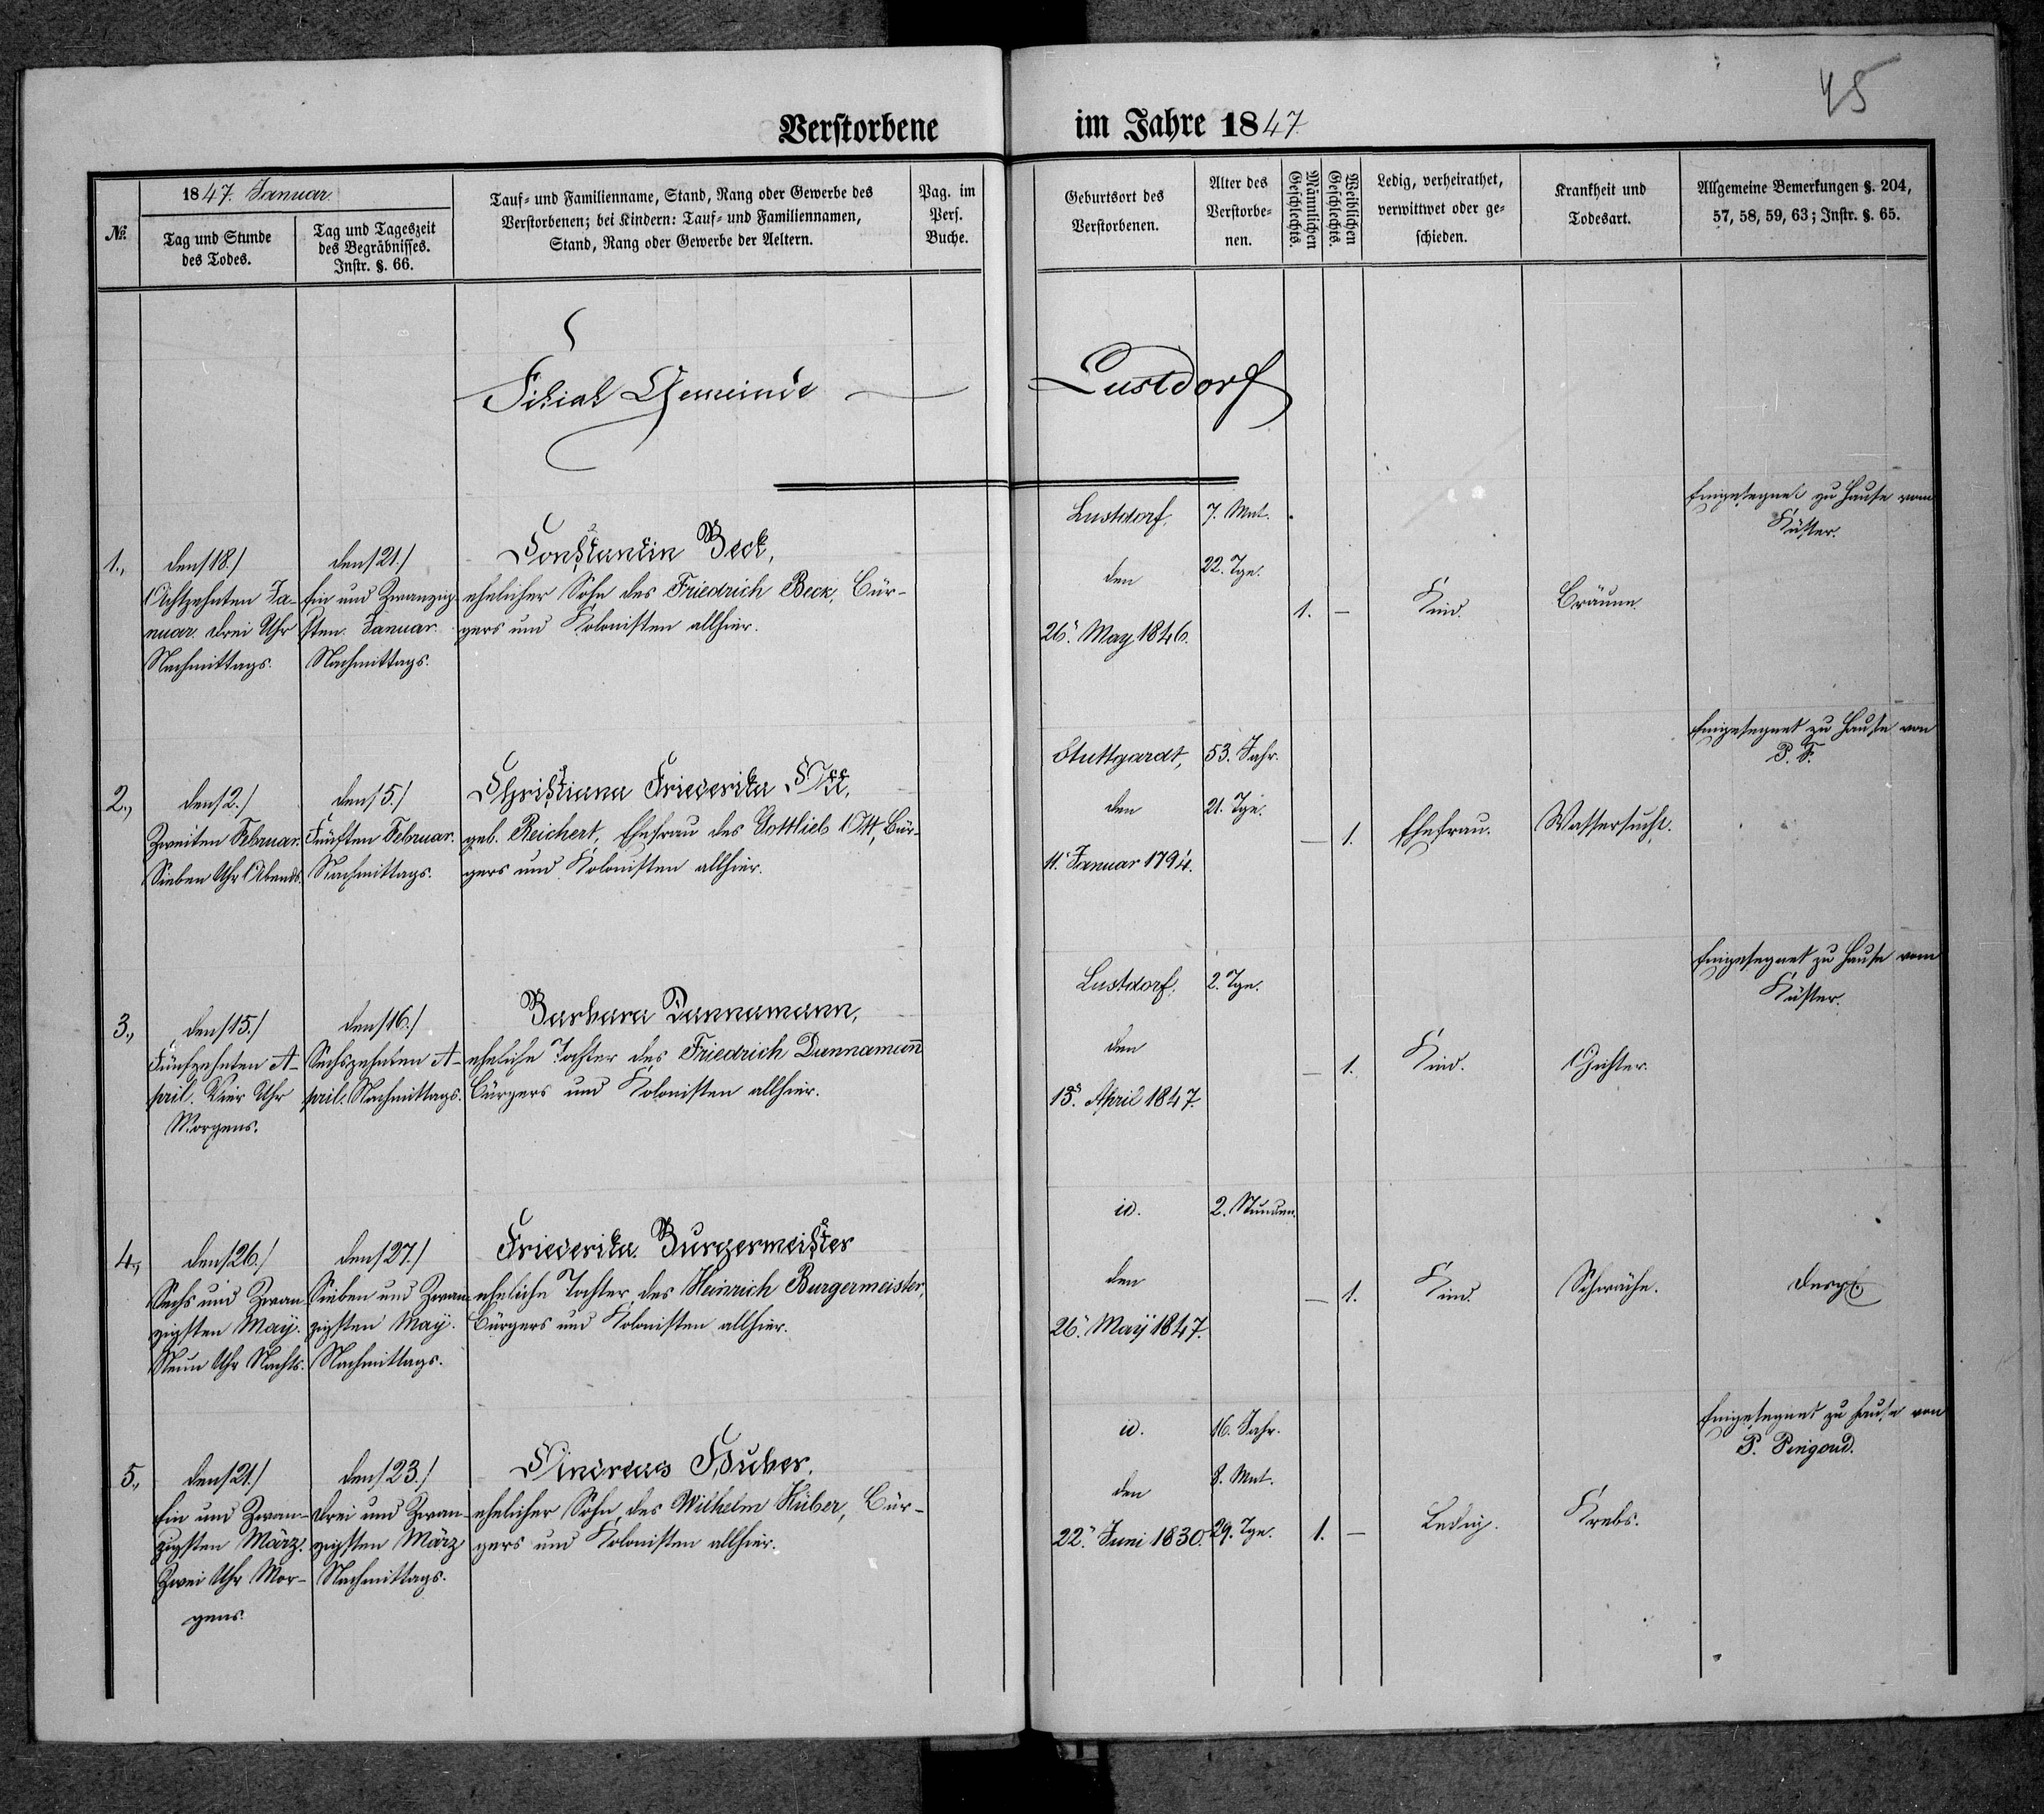 45
Verstorbene im Jahre 1847.
№.
1847. Januar.
Tag und Stunde
des Todes.
Tag und Tageszeit
des Begräbnisses.
Instr. §. 66.
Tauf- und Familienname, Stand, Rang oder Gewerbe des
Verstorbenen; bei Kindern: Tauf- und Familiennamen,
Stand, Rang oder Gewerbe der Aeltern.
Pag. im
Pers.
Buche.
Geburtsort des
Verstorbenen.
Alter des
Verstorbe-
nen.
Männlichen
Geschlechts.
Weiblichen
Geschlechts.
Ledig, verheirathet,
verwittwet oder ge-
schieden.
Krankheit und
Todesart.
Allgemeine Bemerkungen §. 204,
57, 58, 59, 63; Instr. §. 65.
Filial Gemeinde — Lustdorf
1.,
den /18./
Achtzehnten Ja-
nuar. Drei Uhr
Nachmittags.
den /21./
Ein und Zwanzig-
sten. Januar.
Nachmittags.
Constantin Beck,
ehelicher Sohn des Friedrich Beck, Bür-
gers und Kolonisten allhier.
Lustdorf.
den
26. May 1846.
7. Mnt.
22. Tge.
1. —
Kind.
Bräune
Eingesegnet zu Hause vom
Küster.
2.,
den /2./
Zweiten Februar.
Sieben Uhr Abends.
den /5./
Fünften Februar.
Nachmittags.
Christiana Friederika Ott,
geb. Reichert, Ehefrau des Gottlieb Ott, Bür-
gers und Kolonisten allhier.
Stuttgardt,
den
11. Januar 1794.
53. Jahr.
21. Tge.
— 1.
Ehefrau.
Wassersucht.
Eingesegnet zu Hause von
P. F.
3.,
den /15./
Fünfzehnten A-
pril. Vier Uhr
Morgens.
den /16./
Sechszehnten A-
pril. Nachmittags.
Barbara Dannamann,
eheliche Tochter des Friedrich Dannamann
Bürgers und Kolonisten allhier.
Lustdorf.
den
13. April 1847.
2. Tge.
— 1.
Kind.
Gichter.
Eingesegnet zu Hause vom
Küster.
4.,
den /26./
Sechs und Zwan-
zigsten May.
Neun Uhr Nachts.
den /27./
Sieben und Zwan-
zigsten May.
Nachmittags.
Friederika Burgermeister
eheliche Tochter des Heinrich Burgermeister,
Bürgers und Kolonisten allhier.
id.
den
26. May 1847.
2. Stunden.
— 1.
Kind.
Schwäche.
Desgl.
5.,
den /21./
Ein und Zwan-
zigsten März.
Zwei Uhr Mor-
gens.
den /23./
Drei und Zwan-
zigsten März
Nachmittags.
Andreas Huber.
ehelicher Sohn, des Wilhelm Huber, Bür-
gers und Kolonisten allhier.
id.
den
22. Juni 1830.
16. Jahr.
8. Mnt.
29. Tge.
1. —
Ledig.
Krebs.
Eingesegnet zu Hause von
P. Pingoud.